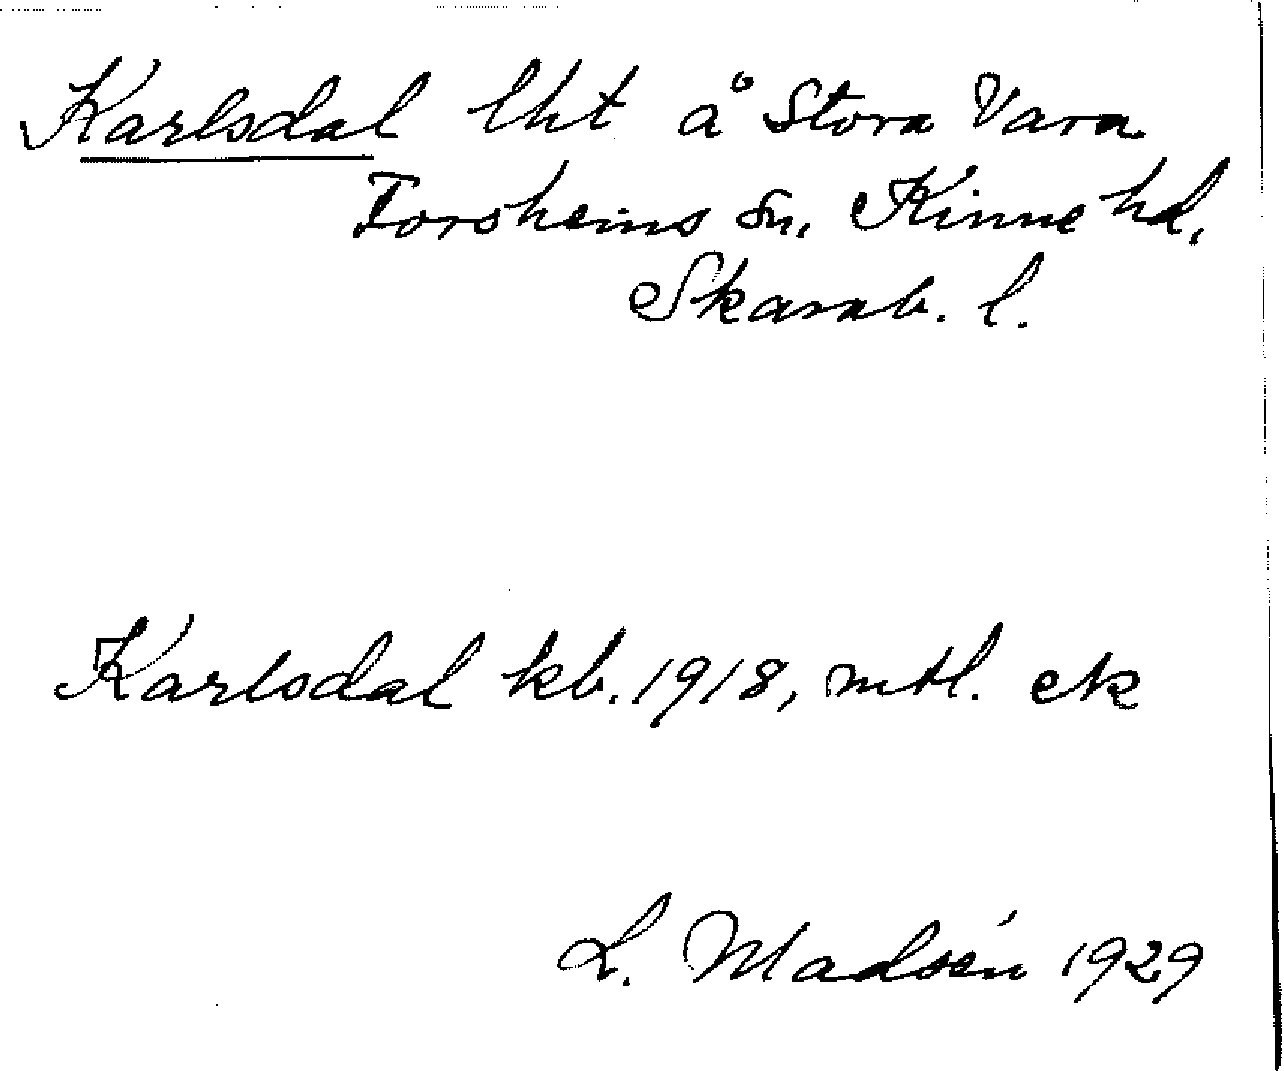 Karlsdal lht å Stora Vara
Forshems sn, Kinne hd,
Skarab. l.
Karlsdal kb. 1918, mtl. ek
L. Madsén 1929